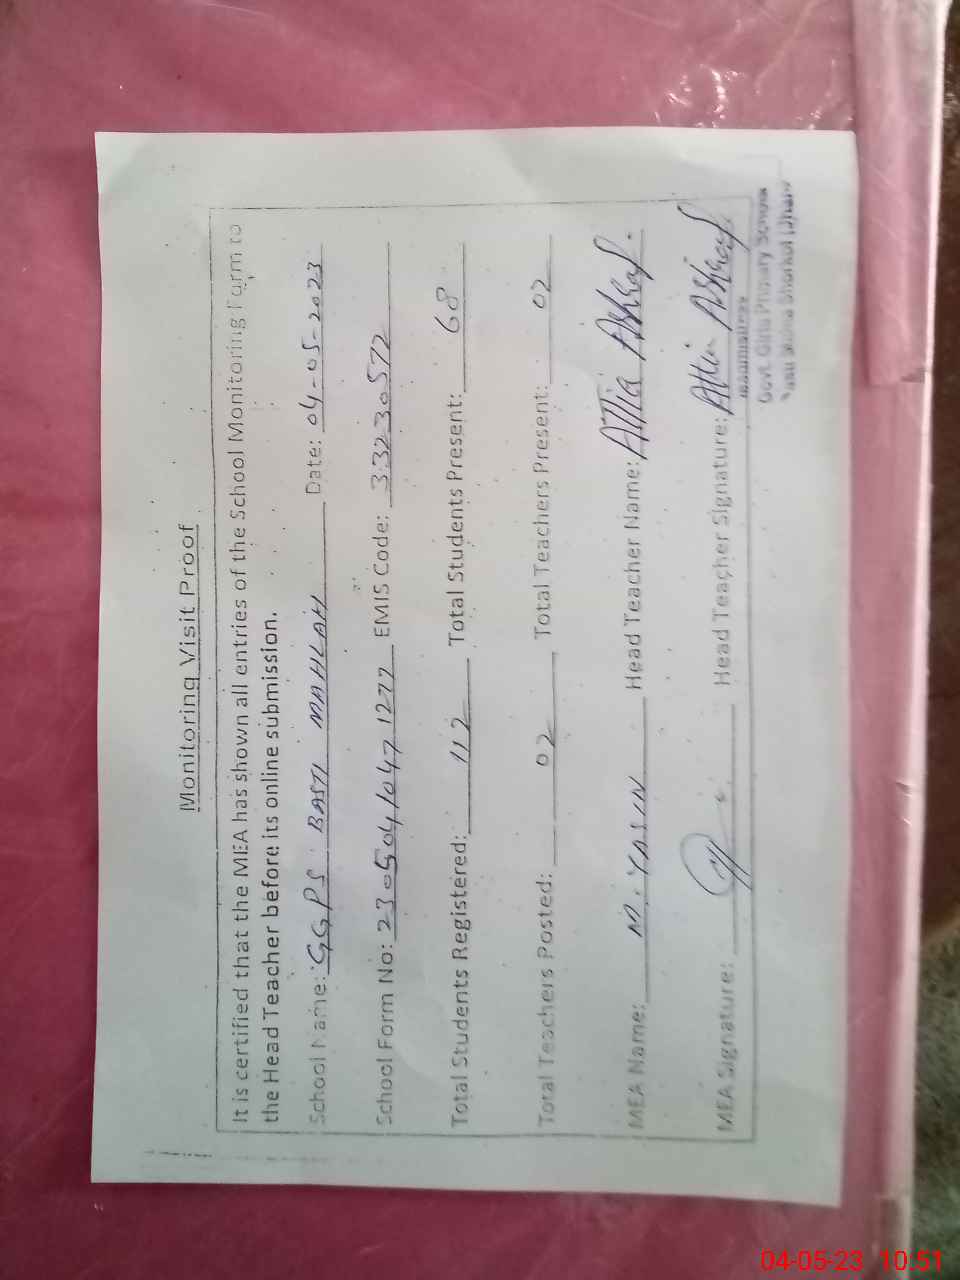 Monitoring Visit Proof
It is certified that the MEA has shown all entries of the School Monitoring Form to
the Head Teacher before its online submission.
School Name: GGPS BASTI MAHLAH Date: 04-05-2023
School Form No: 23050410471277 EMIS Code: 33230572
Total Students Registered: 112 Total Students Present: 68
Total Teachers Posted: 02 Total Teachers Present: 02
MEA Name: M. YASIN Head Teacher Name: ATTia AShraf.
MEA Signature: Head Teacher Signature: Attia AShraf
Headmistress
Govt. Girls Primary School
04-05-23 10:51